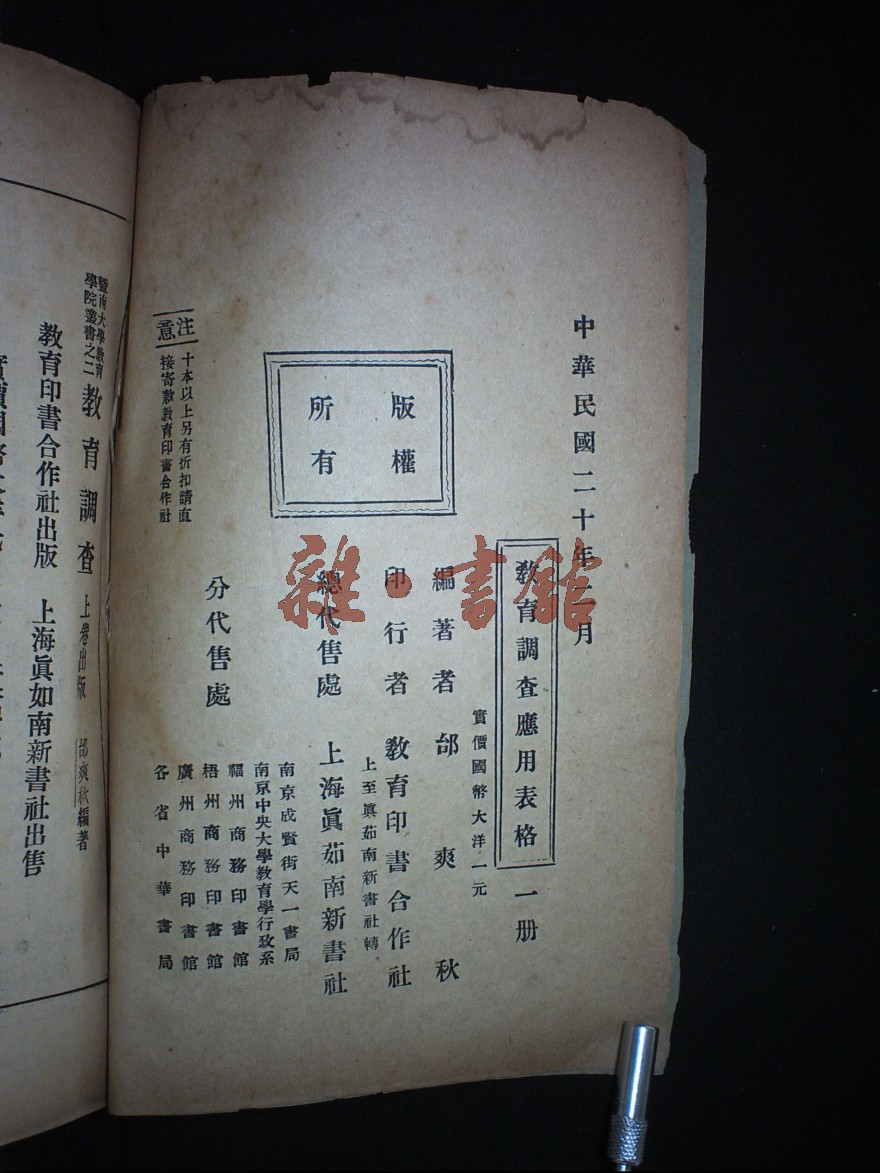 中華民國二十年二月
教育調查應用表格 一册
實價國幣大洋一元
編著者 邰爽秋
印行者 教育印書合作社
上至眞茹南新書社轉
總代售處 上海眞茹南新書社
分代售處
南京成賢街天一書局
南京中央大學教育學行政系
福州商務印書館
梧州商務印書館
廣州商務印書館
各省中華書局
版權
所有
注意
十本以上另有折扣請直
接寄敎敎育印書合作社
雜·書館
暨南大學教育
學院叢書之二
教育調查 上卷出版 邰爽秋編著
教育印書合作社出版 上海眞如南新書社出售